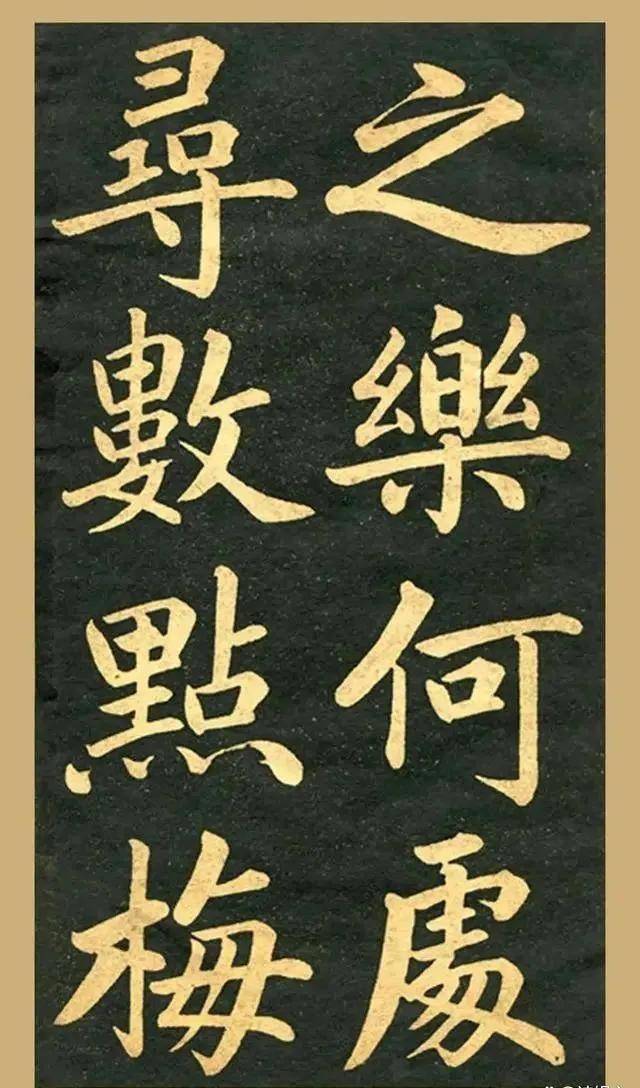 之樂何處
尋數點梅